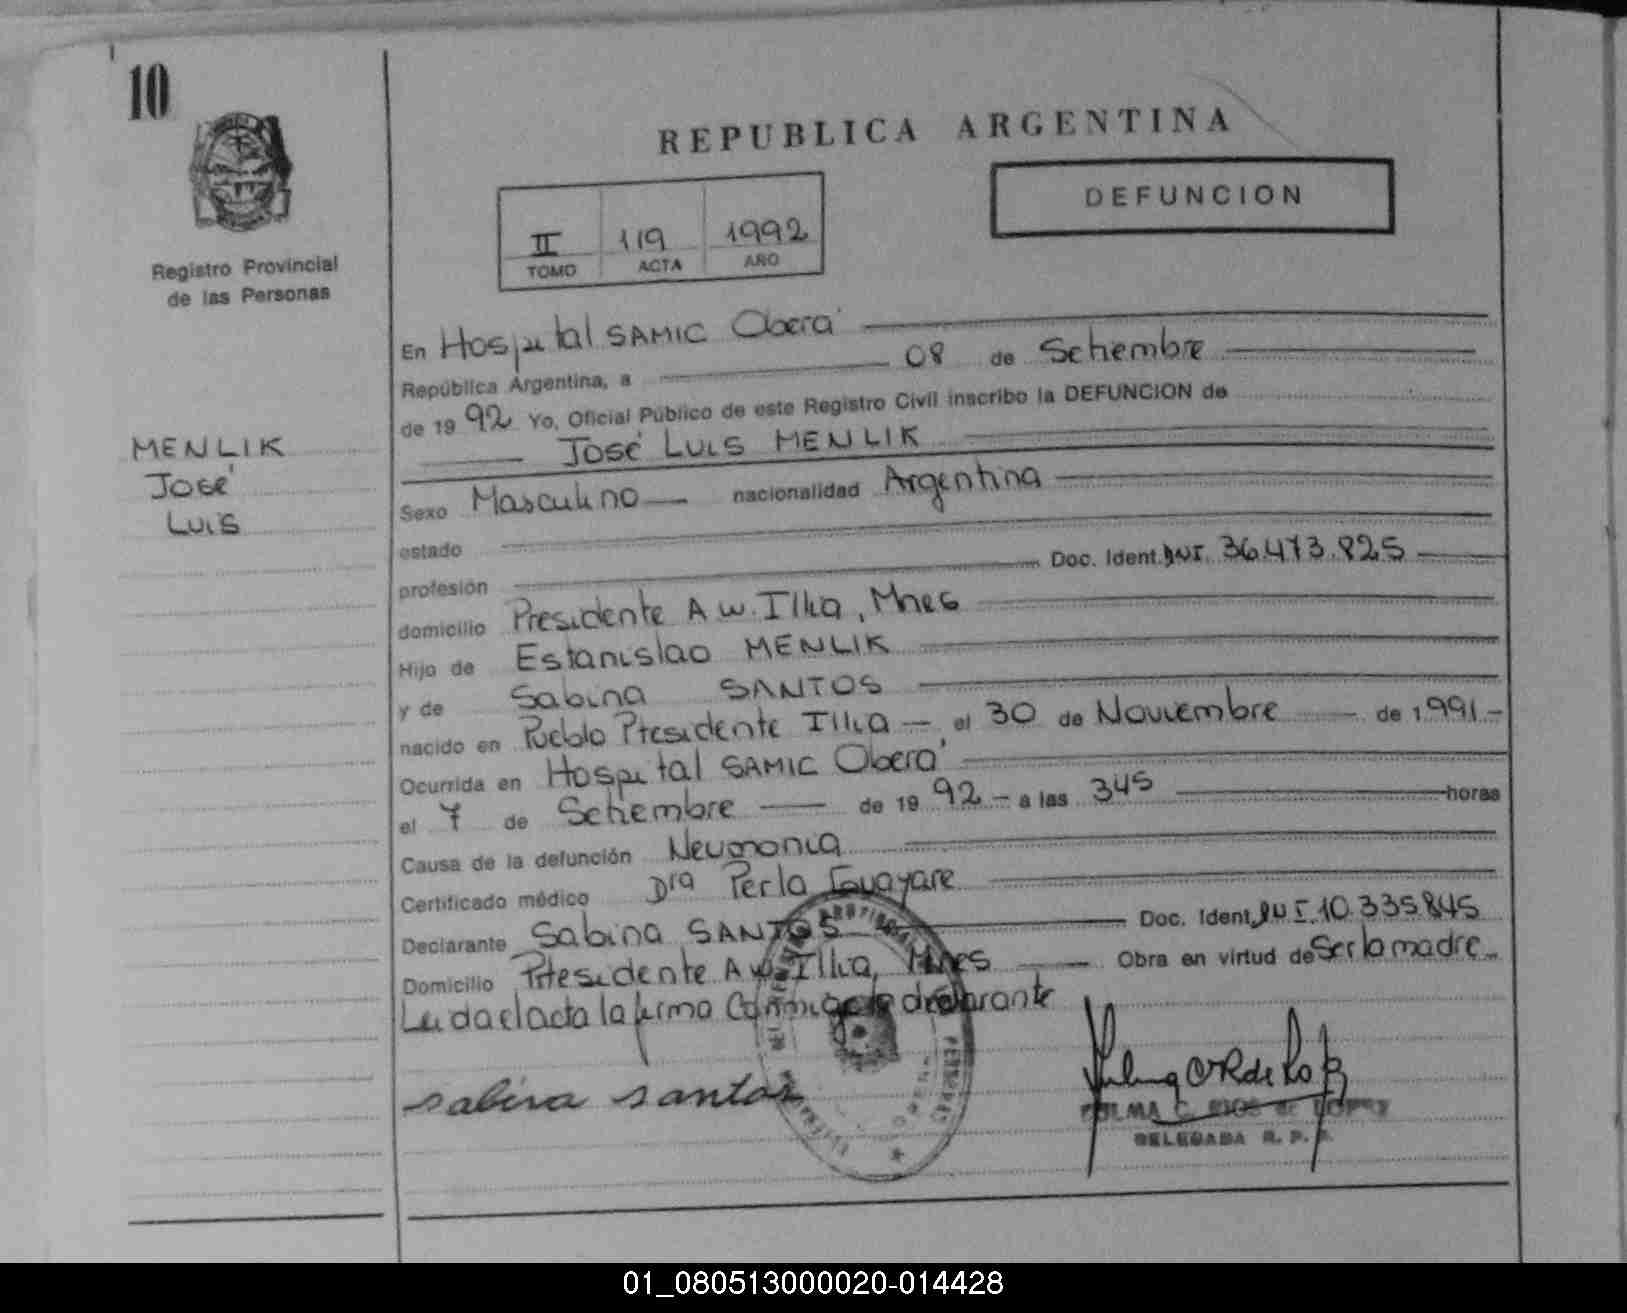 10
REPUBLICA ARGENTINA
DEFUNCION
II 119 1992
TOMO ACTA AÑO
Registro Provincial
de las Personas
MENLIK
José
LUIS
En Hospital SAMIC Oberá
República Argentina, a 08 de Setiembre
de 19 92 Yo, Oficial Público de este Registro Civil inscribo la DEFUNCION de
José LUIS MENLIK
Sexo Masculino nacionalidad Argentina
estado
profesión Doc. Ident. DNI. 36.473.825
domicilio Presidente A W. Illia, Mnes
Hijo de Estanislao MENLIK
y de Sabina SANTOS
nacido en Pueblo Presidente Illia el 30 de Noviembre de 1.991.-
Ocurrida en Hospital SAMIC Oberá
el 7 de Setiembre de 19 92 - a las 345 horas
Causa de la defunción Neumonia
Certificado médico Dra Perla
Declarante Sabina SANTOS Doc. Ident. DNI. 10.335.845
Domicilio Presidente A W. Illia, Mnes Obra en virtud de Ser la madre
Leida el acta la firma Conmigo la declarante
sabina santos
C. RIOS de LOPEZ
DELEGADA R. P. P.
01_080513000020-014428